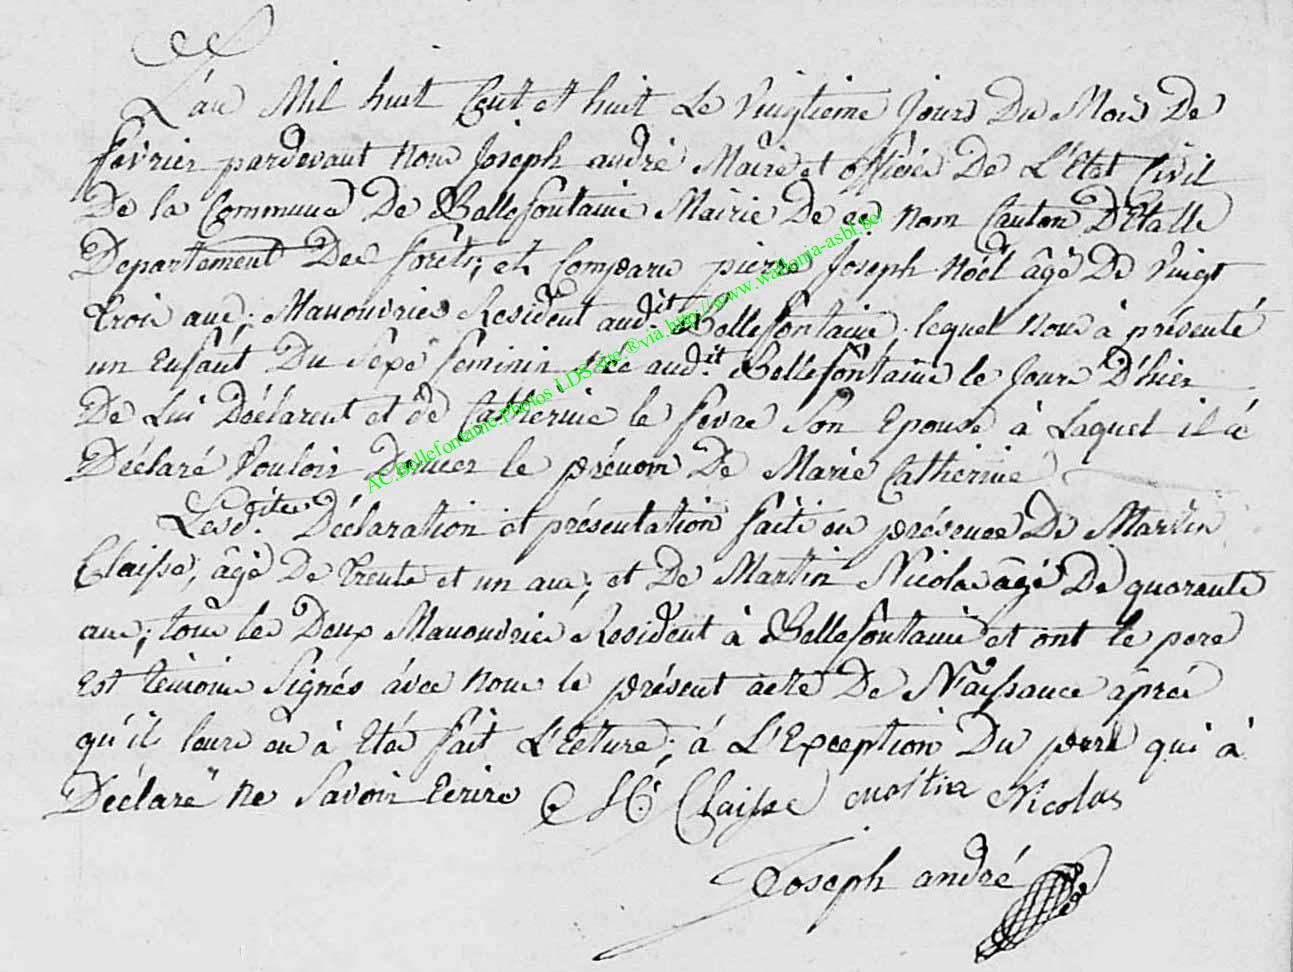 L'an Mil huit Cent et huit Le Vingtieme Jours Du Mois De
fevrier pardevant nous Joseph andré Maire et officié De L'Etat Civil
De la Commune De Bellefontaine Mairie De ce nom Canton D'Etalle
Departement Des forêts; est Comparu pierre Joseph Noël âgé De Vingt
trois ans; Manouvrier Resident aud.it Bellefontaine lequel nous à présenté
un Enfant Du Sexe feminin née aud.it Bellefontaine le Jours D'hier
De Lui Déclarent et de Catherine le fevre Son Epouse à Laquel il à
Déclaré Vouloir Donner le prénom De Marie Catherine
Lesd.ites Déclaration et présentation faite en présence De Martin
Claisse; âgé De trente et un ans; et De Martin Nicolas âgé De quarante
ans; tous les Deux Manouvries Resident à Bellefontaine et ont le pere
est témoins Signés avec nous le présent acte De Naissance après
qu'il leurs en à Etés fait L'Eture; á L'Exception Du pere qui à
Déclaré ne Savoir Ecrire M Claisse Nicolas
Joseph andré
AC.Bellefontaine.Photos LDS site.®via.http://www.wallonia-asbl.be